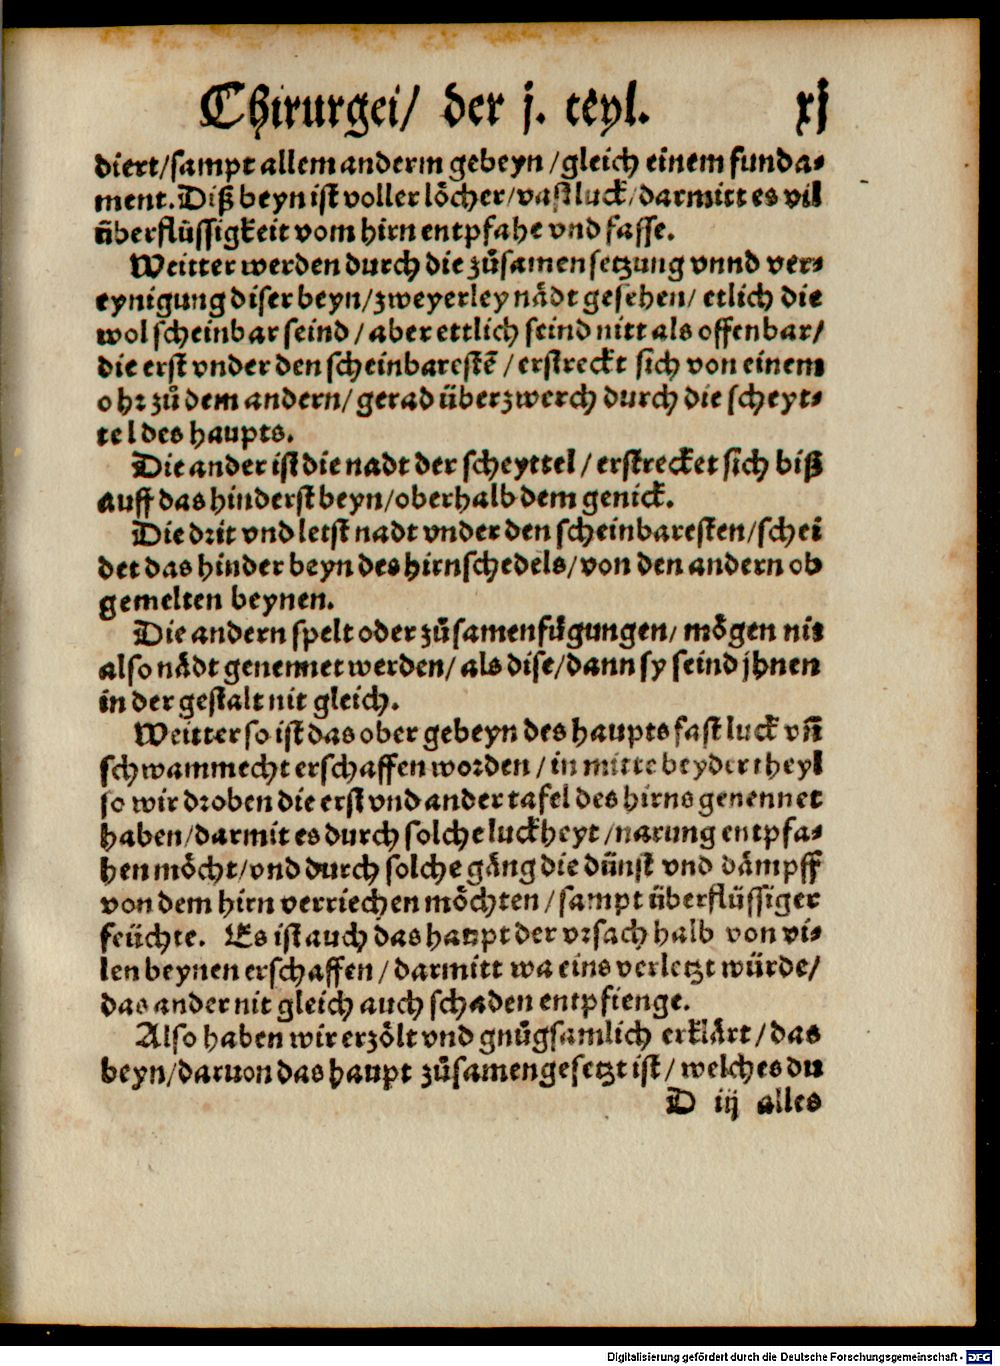 Chirurgei/ der j. teyl. xj
diert/sampt allem anderm gebeyn/gleich einem funda⸗
ment. Diß beyn ist voller löcher/vast luck/darmitt es vil
überflüssigkeit vom hirn entpfahe vnd fasse.
Weitter werden durch die zůsamensetzung vnnd ver⸗
eynigung diser beyn/zweyerley nädt gesehen/ etlich die
wol scheinbar seind/aber ettlich seind nitt als offenbar/
die erst vnder den scheinbarestē/ erstreckt sich von einem
ohr zů dem andern/gerad überzwerch durch die scheyt⸗
tel des haupts.
Die ander ist die nadt der scheyttel/ erstrecket sich biß
auff das hinderst beyn/oberhalb dem genick.
Die drit vnd letst nadt vnder den scheinbaresten/schei
det das hinder beyn des hirnschedels/von den andern ob
gemelten beynen.
Die andern spelt oder zůsamenfügungen/ mögen nit
also nädt genennet werden/ als dise/dann sy seind jhnen
in der gestalt nit gleich.
Weitter so ist das ober gebeyn des haupts fast luck vñ
schwammecht erschaffen worden/in mitte beyder theyl
so wir droben die erst vnd ander tafel des hirns genennet
haben/darmit es durch solche luckheyt/narung entpfa⸗
hen möcht/vnd durch solche gäng die dünst vnd dämpff
von dem hirn verriechen möchten/sampt überflüssiger
feüchte. Es ist auch das haupt der vrsach halb von vi⸗
len beynen erschaffen/darmitt wa eins verletzt würde/
das ander nit gleich auch schaden entpfienge.
Also haben wir erzölt vnd gnůgsamlich erklärt/das
beyn/daruon das haupt zůsamengesetzt ist/welches du
D iij alles
Digitalisierung gefördert durch die Deutsche Forschungsgemeinschaft - DFG